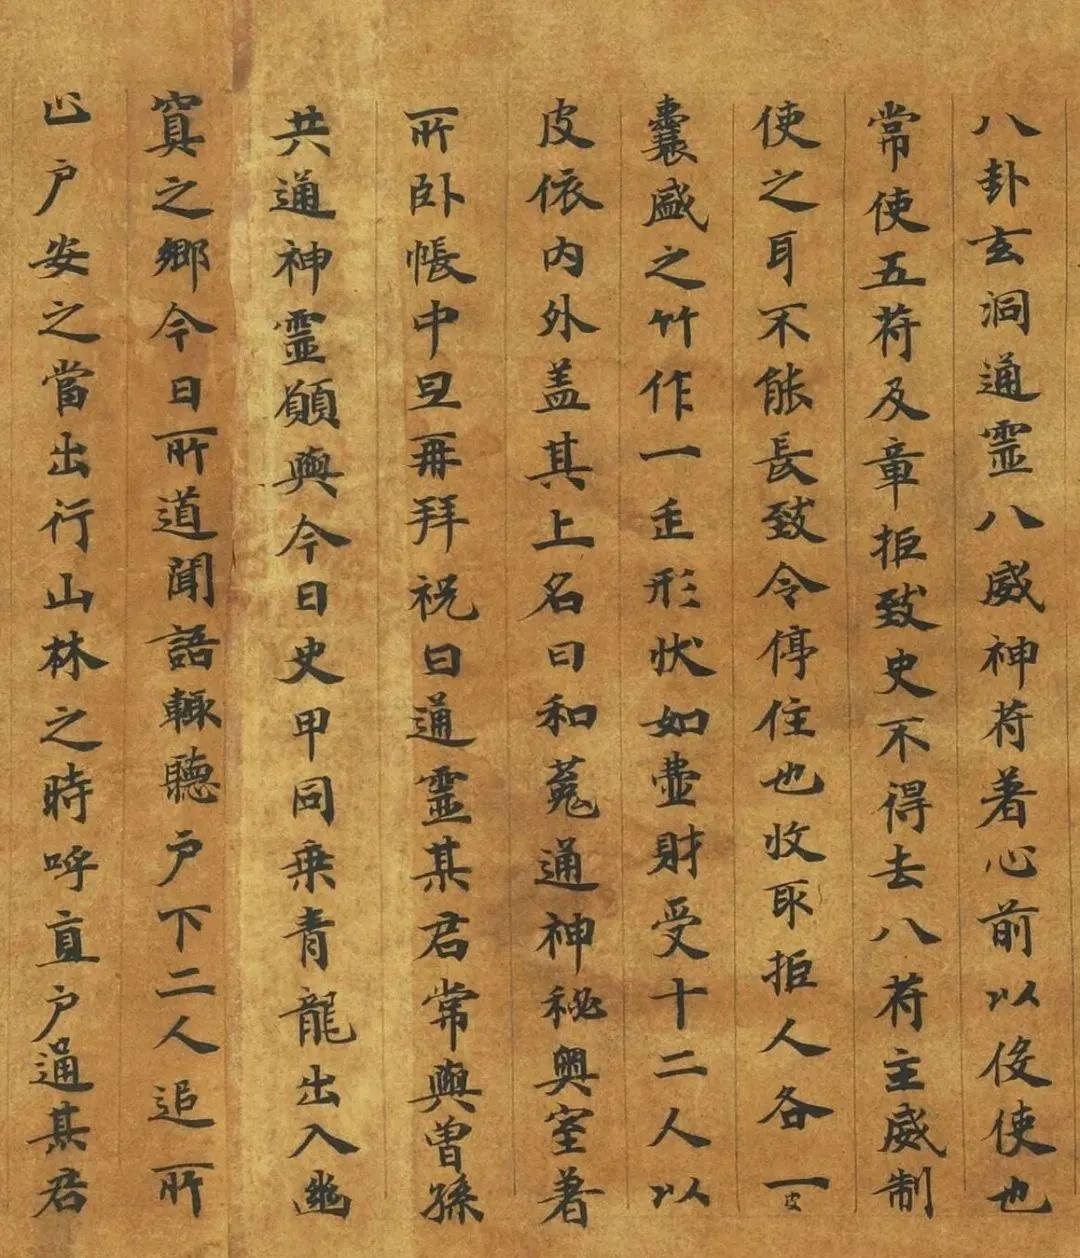 八卦玄洞通靈八威神苻著心前以伇使也
常使五苻及章拒致史不得去八苻主威制
使之耳不能長致令停住也收取拒人各一皮
囊盛之竹作一形狀如壺財受十二人以
皮依內外盖其上名曰和菟通神秘奧室著
所卧帳中旦再拜祝曰通靈某君常與曾孫
共通神靈願與今日史甲同乗青龍出入幽
冥之鄉今日所道聞語輙聽户下二人追所
户安之當出行山林之時呼直户通某君